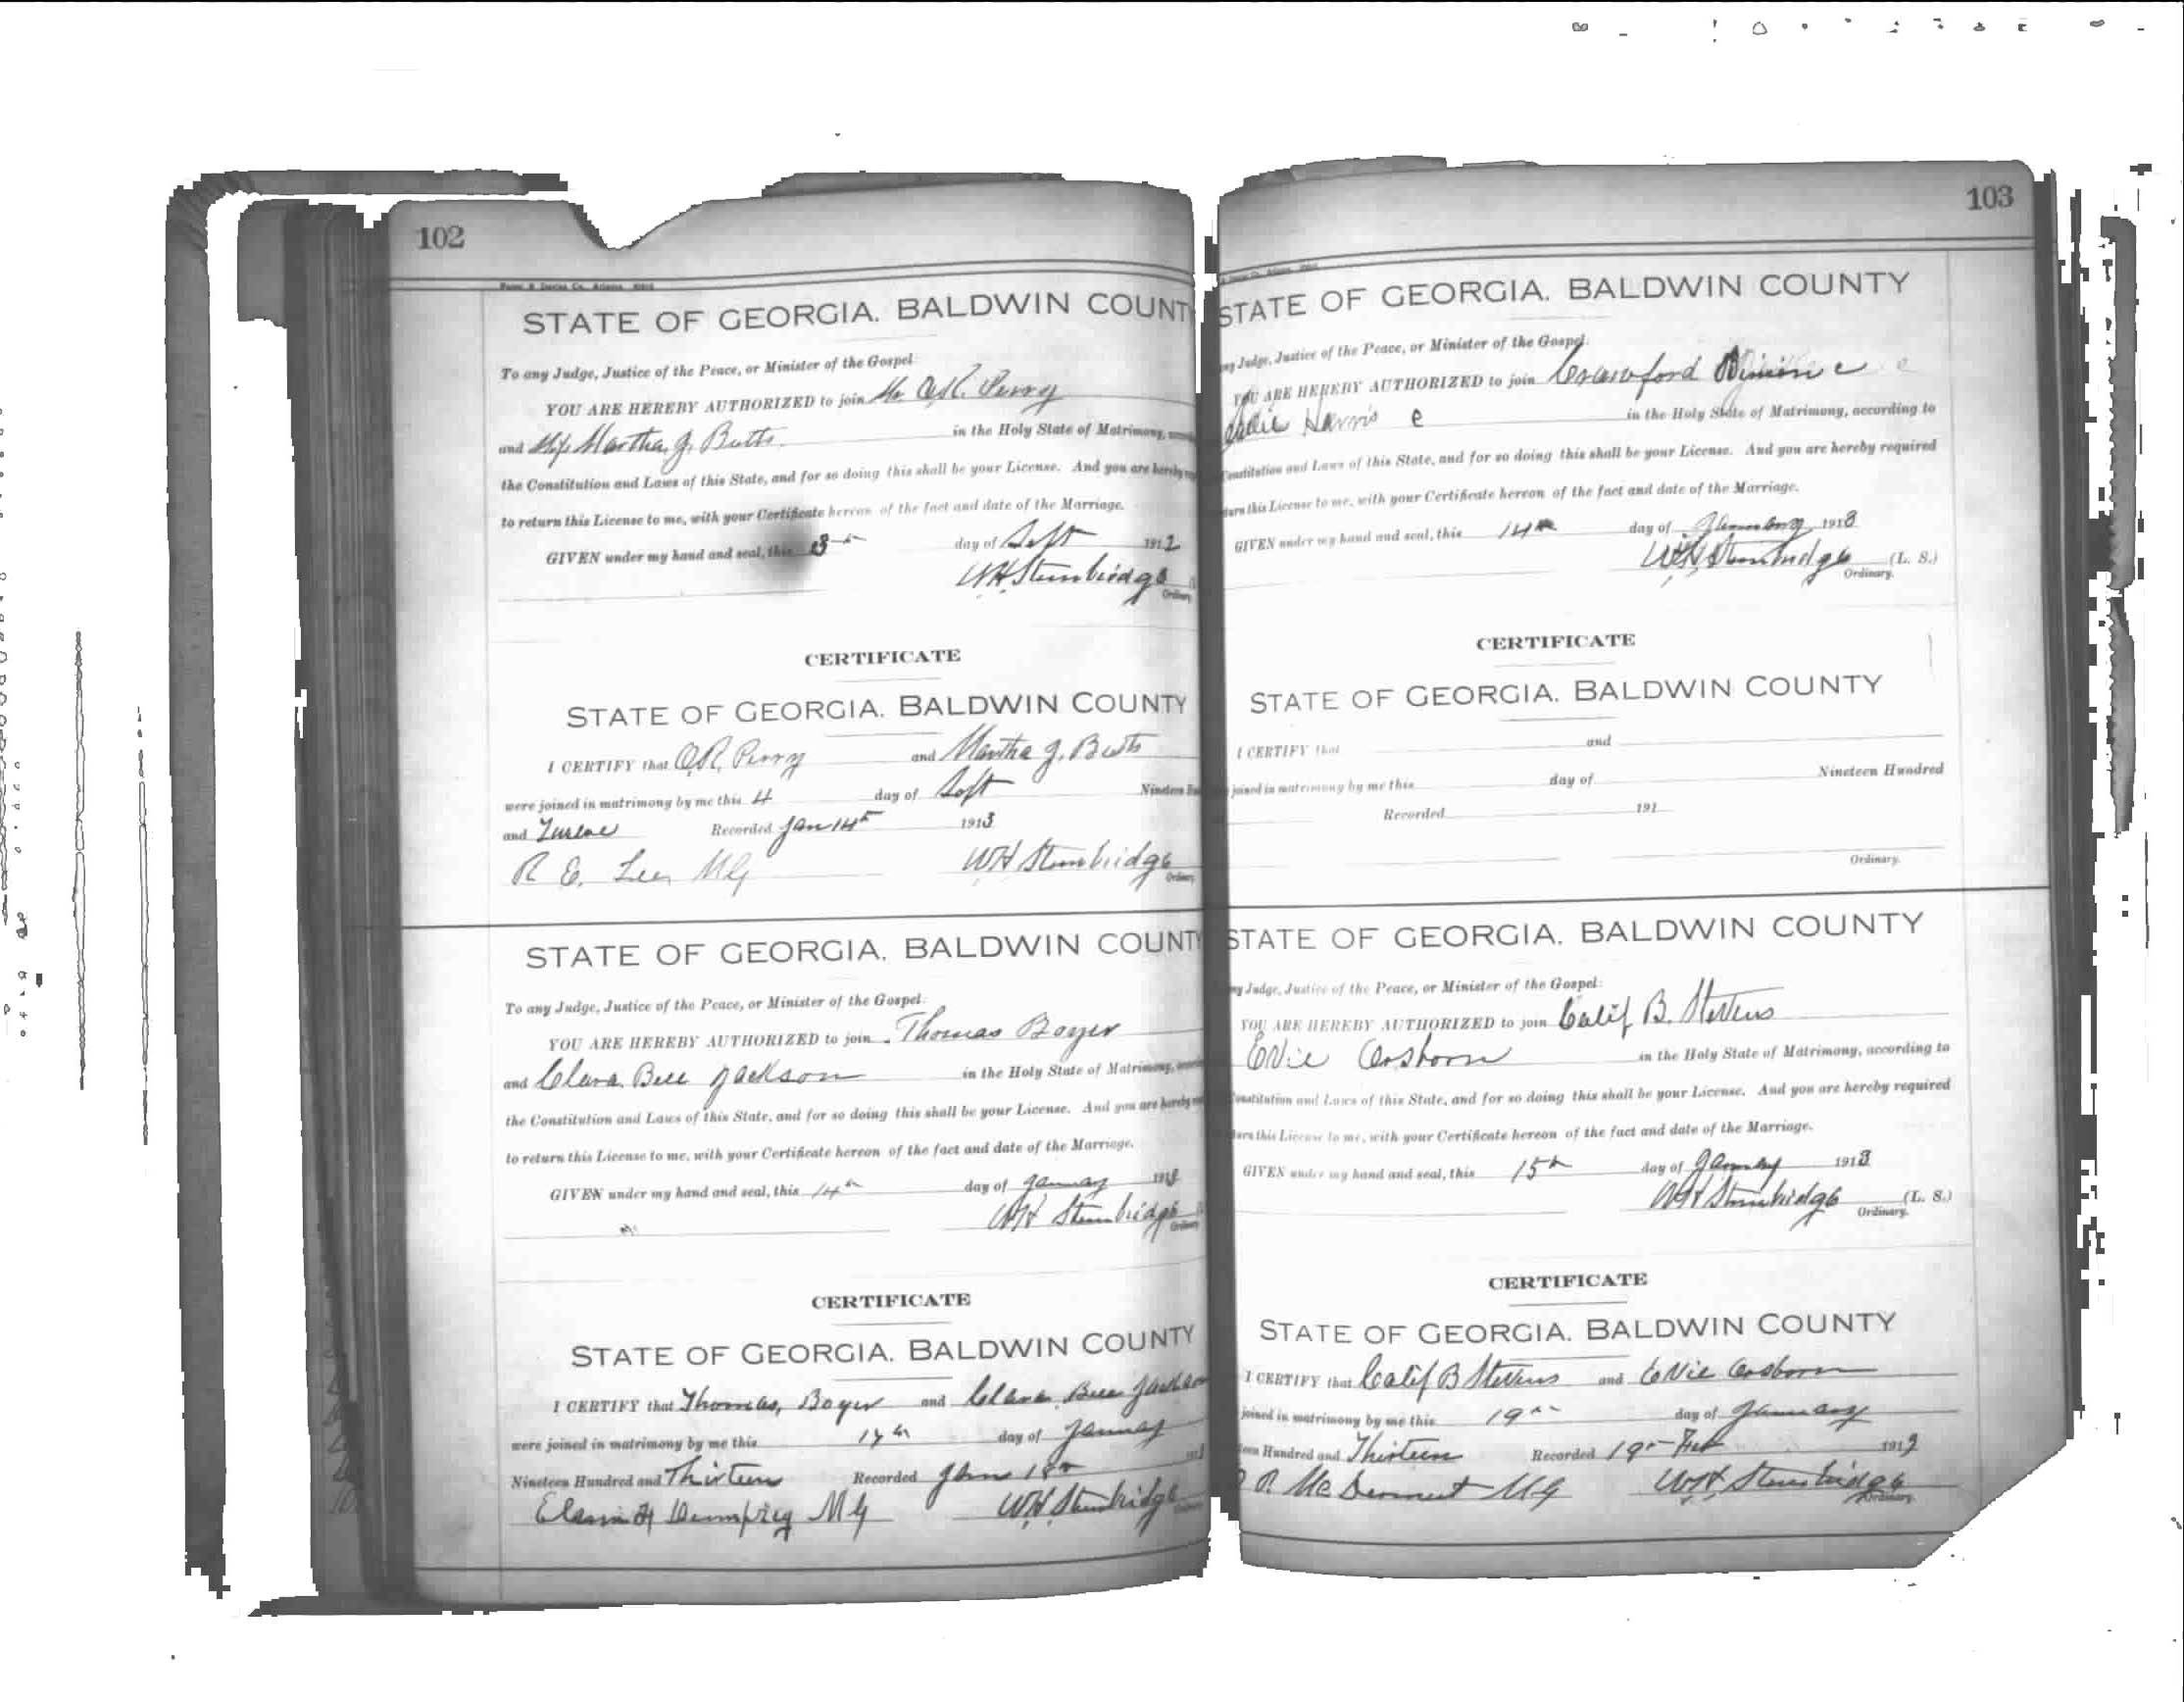 102
STATE OF GEORGIA. BALDWIN COUNT
To any Judge, Justice of the Peace, or Minister of the Gospel:
YOU ARE HEREBY AUTHORIZED to join Mr. Perry
and Martha J. Butts in the Holy State of Matrimony,
the Constitution and Laws of this State, and for so doing this shall be your License. And you are hereby
to return this License to me, with your Certificate hereon of the fact and date of the Marriage.
GIVEN under my hand and seal, this 3 day of Sept 1912
WH Stembridge
Ordinary
CERTIFICATE
STATE OF GEORGIA. BALDWIN COUNTY
I CERTIFY that Perry and Martha J. Butts
were joined in matrimony by me this 4 day of Sept Nineteen
and Twelve Recorded Jan 14th 1913
R E. Lee MG WH Stembridge
Ordinary
STATE OF GEORGIA. BALDWIN COUNTY
To any Judge, Justice of the Peace, or Minister of the Gospel:
YOU ARE HEREBY AUTHORIZED to join Thomas Boyer
and Clara Bell Jackson in the Holy State of Matrimony,
the Constitution and Laws of this State, and for so doing this shall be your License. And you are hereby
to return this License to me, with your Certificate hereon of the fact and date of the Marriage.
GIVEN under my hand and seal, this 14th day of January 1913
WH Stembridge
Ordinary
CERTIFICATE
STATE OF GEORGIA. BALDWIN COUNTY
I CERTIFY that Thomas, Boyer and Clara Bell Jackson
were joined in matrimony by me this day of January
Nineteen Hundred and Thirteen Recorded Jan 18th
MG WH Stembridge
103
STATE OF GEORGIA. BALDWIN COUNTY
Judge, Justice of the Peace, or Minister of the Gospel:
YOU ARE HEREBY AUTHORIZED to join Crawford c
Harris c in the Holy State of Matrimony, according to
Constitution and Laws of this State, and for so doing this shall be your License. And you are hereby required
this License to me, with your Certificate hereon of the fact and date of the Marriage.
GIVEN under my hand and seal, this 14th day of January 1913
WH Stembridge (L. S.)
Ordinary.
CERTIFICATE
STATE OF GEORGIA. BALDWIN COUNTY
I CERTIFY that and
joined in matrimony by me this day of Nineteen Hundred
Recorded 191
Ordinary.
STATE OF GEORGIA. BALDWIN COUNTY
Judge, Justice of the Peace, or Minister of the Gospel:
YOU ARE HEREBY AUTHORIZED to join Calif B. Stevens
Evie Osborn in the Holy State of Matrimony, according to
Constitution and Laws of this State, and for so doing this shall be your License. And you are hereby required
this License to me, with your Certificate hereon of the fact and date of the Marriage.
GIVEN under my hand and seal, this 15th day of January 1913
WH Stembridge (L. S.)
Ordinary.
CERTIFICATE
STATE OF GEORGIA. BALDWIN COUNTY
I CERTIFY that Calif B Stevens and Evie Osborn
joined in matrimony by me this 19th day of January
Hundred and Thirteen Recorded 19th Feb 1913
Mc Dermont MG WH Stembridge
Ordinary.